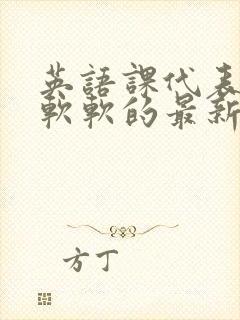 英語課代表
軟軟的最新
方丁